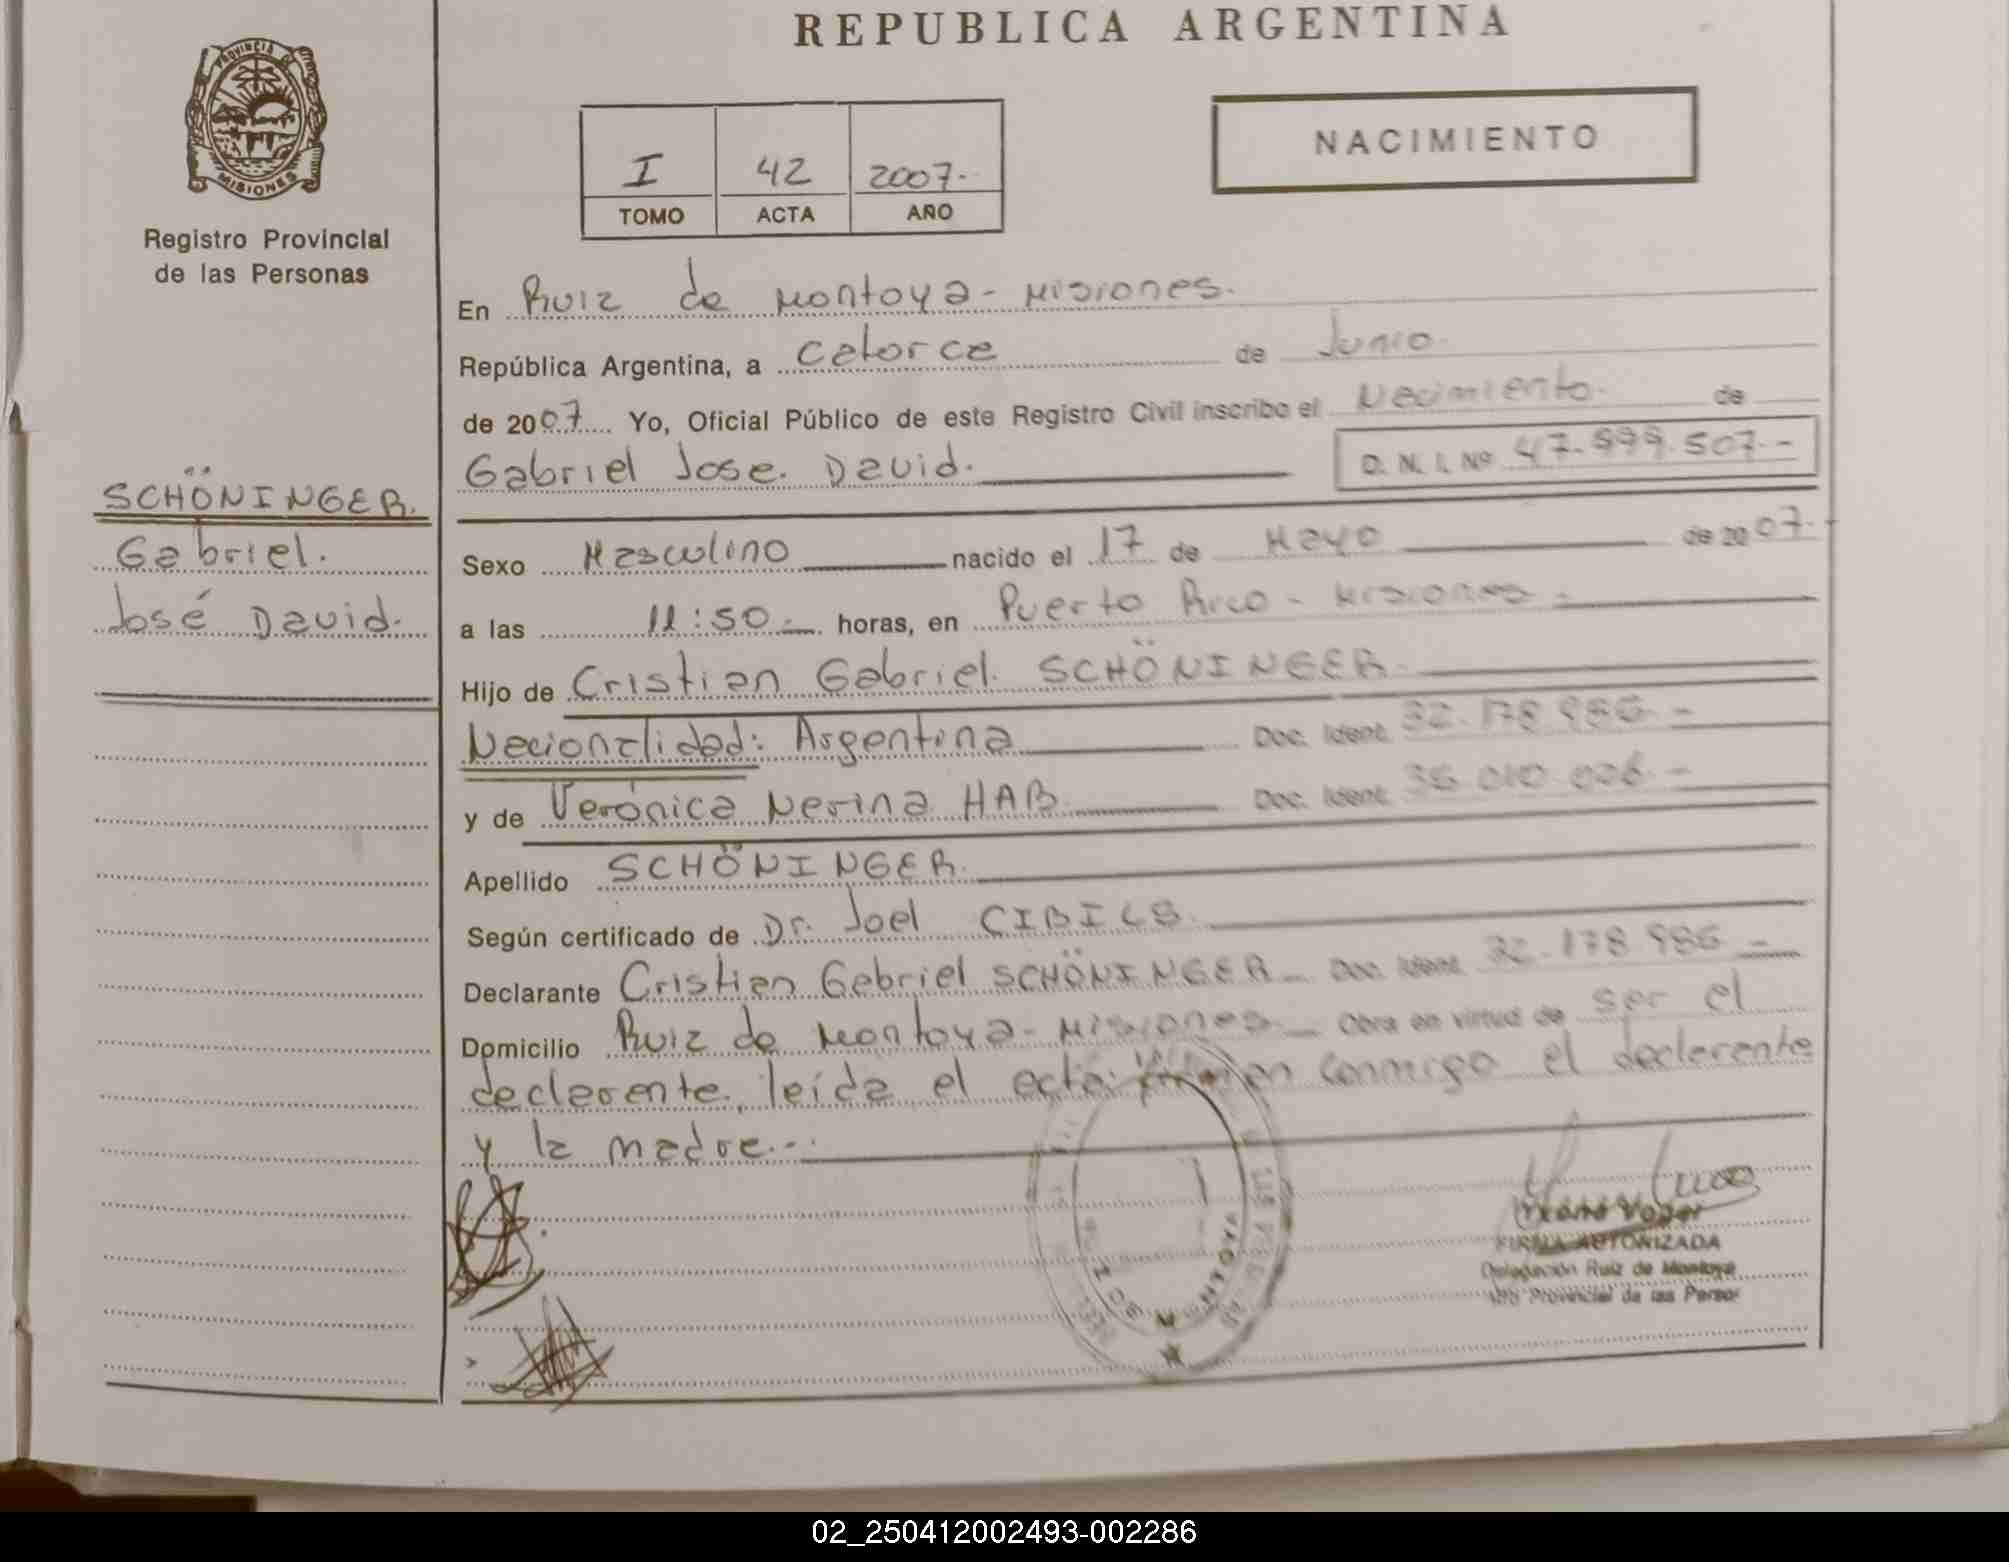 REPUBLICA ARGENTINA
PROVINCIA DE MISIONES
Registro Provincial
de las Personas
I 42 2007.-
TOMO ACTA AÑO
NACIMIENTO
En Ruiz de Montoya - Misiones.
República Argentina, a catorce de Junio.
de 2007 Yo, Oficial Público de este Registro Civil inscribo el Nacimiento. de
Gabriel Jose. David. D. N. I. Nº 47.999.507.-
SCHÖNINGER.
Gabriel.
José David.
Sexo Masculino nacido el 17 de Mayo de 2007.-
a las 11:50.- horas, en Puerto Rico - Misiones -
Hijo de Cristian Gabriel. SCHÖNINGER.
Nacionalidad: Argentina Doc. Ident. 32.178.986.-
y de Verónica Nerina HAB. Doc. Ident.
Apellido SCHÖNINGER.
Según certificado de Dr. Joel CIBILS.
Declarante Cristian Gabriel SCHÖNINGER - Doc. Ident. 32.178.986.-
Domicilio Ruiz de Montoya - Misiones.- Obra en virtud de ser el
declarente, leída el acta firman conmigo el declarente
y la madre.-.
FIRMA AUTORIZADA
Delegación Ruiz de Montoya
Provincial de las Person
02_250412002493-002286